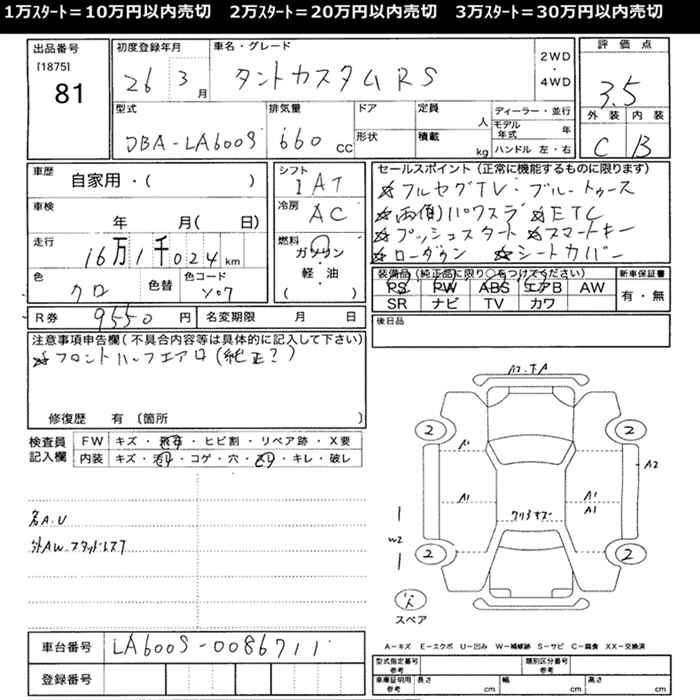 1万ｽﾀｰﾄ＝10万円以内売切　2万ｽﾀｰﾄ＝20万円以内売切　3万ｽﾀｰﾄ＝30万円以内売切
出品番号
[1875]
81
初度登録年月
26 3月
車名・グレード
タントカスタムRS
2WD
・
4WD
評価点
3.5
外装 内装
C B
型式
DBA-LA600S
排気量
660 CC
ドア
形状
定員 人
積載 kg
ディーラー・並行
モデル年式 年
ハンドル 左・右
車歴
自家用・( )
車検
年 月( 日)
走行
16万1千024km
色
クロ
色替
色コード
X07
シフト
IAT
冷房
AC
燃料
ガソリン
軽・油
( )
セールスポイント(正常に機能するものに限ります)
☆フルセグTV・ブルートゥース
☆両側パワスラ ☆ETC
☆プッシュスタート ☆スマートキー
☆ローダウン ☆シートカバー
装備品(純正品に限り○をつけてください)
PS PW ABS エアB AW
SR ナビ TV カワ
新車保証書
有・無
R券 9550円
名変期限 月 日
後日品
注意事項申告欄(不具合内容等は具体的に記入して下さい)
☆フロントハーフエアロ(純正?)
修復歴 有 〔箇所 〕
検査員
記入欄
FW キズ・飛石・ヒビ割・リペア跡・X要
内装 キズ・汚れ・コゲ・穴・スレ・キレ・破レ
外AW.スタッドレス
A2
2 2
A1
A2
A1
A1
A1
W2
クリアハゲ
2 2
スペア
A－キズ E－エクボ U－凹み W－補修跡 S－サビ C－腐食 XX－交換済
車台番号 LA600S-0086711
登録番号
型式指定番号
参考
類別区分番号
参考
車庫証明用
参考
長さ cm
幅 cm
高さ cm